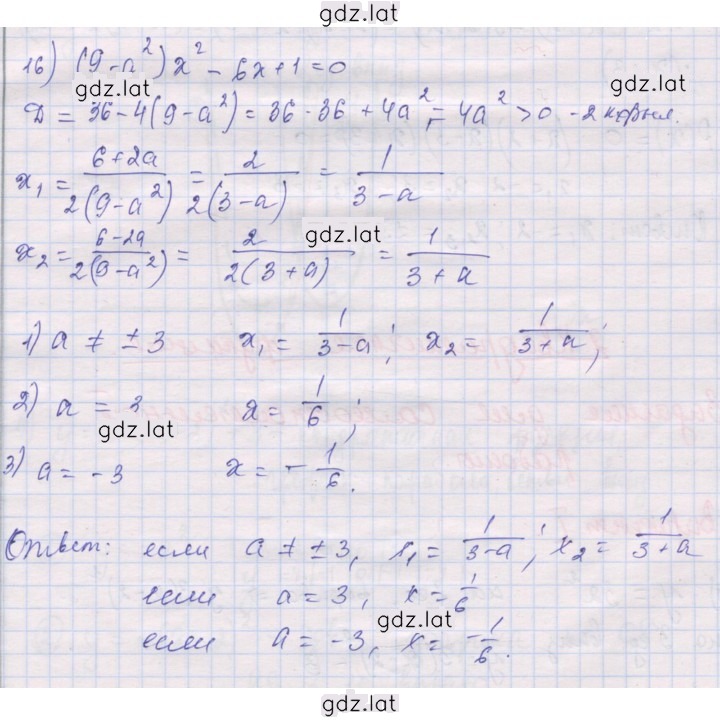 gdz.lat
16) (9-a²)x² - 6x+1=0
gdz.lat gdz.lat
D = 36-4(9-a²)=36-36+4a²=4a²>0 -2 корня.
x₁ = (6+2a)/(2(9-a²)) = 2/(2(3-a)) = 1/(3-a)
gdz.lat
x₂ = (6-2a)/(2(9-a²)) = 2/(2(3+a)) = 1/(3+a)
1) a ≠ ±3 x₁ = 1/(3-a); x₂ = 1/(3+a);
2) a = 3 x = 1/6;
gdz.lat
3) a = -3 x = -1/6.
Ответ: если a ≠ ±3, x₁ = 1/(3-a); x₂ = 1/(3+a)
если a = 3, x = 1/6
gdz.lat
если a = -3, x = -1/6.
gdz.lat